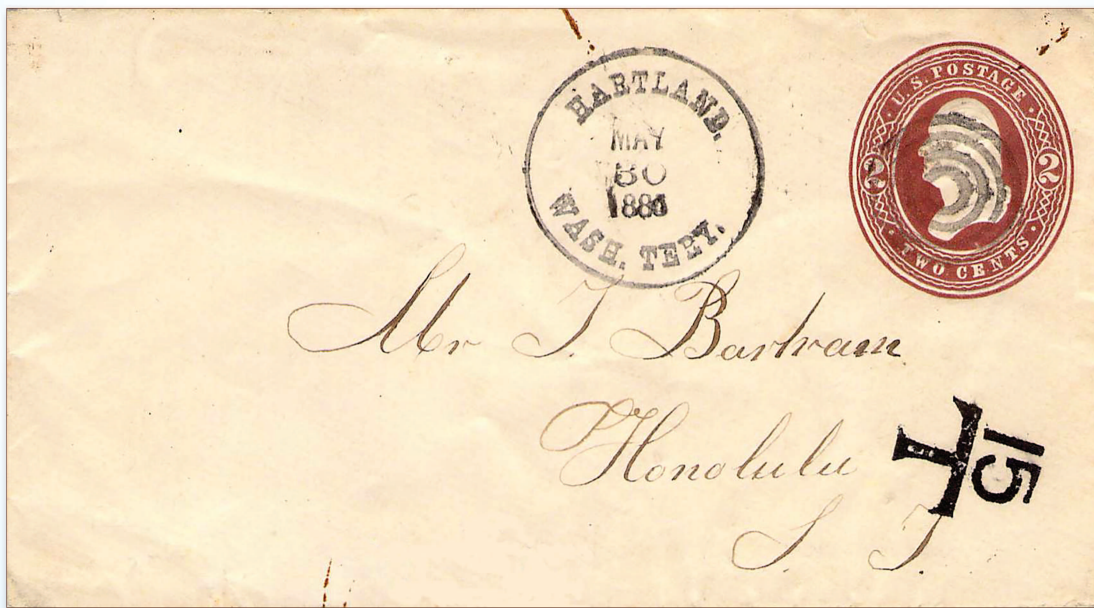 HARTLAND.
MAY
30
WASH. TERY.
U. S. POSTAGE
2 2
TWO CENTS
Mr J. Bartram
Honolulu
S. I.
15
T